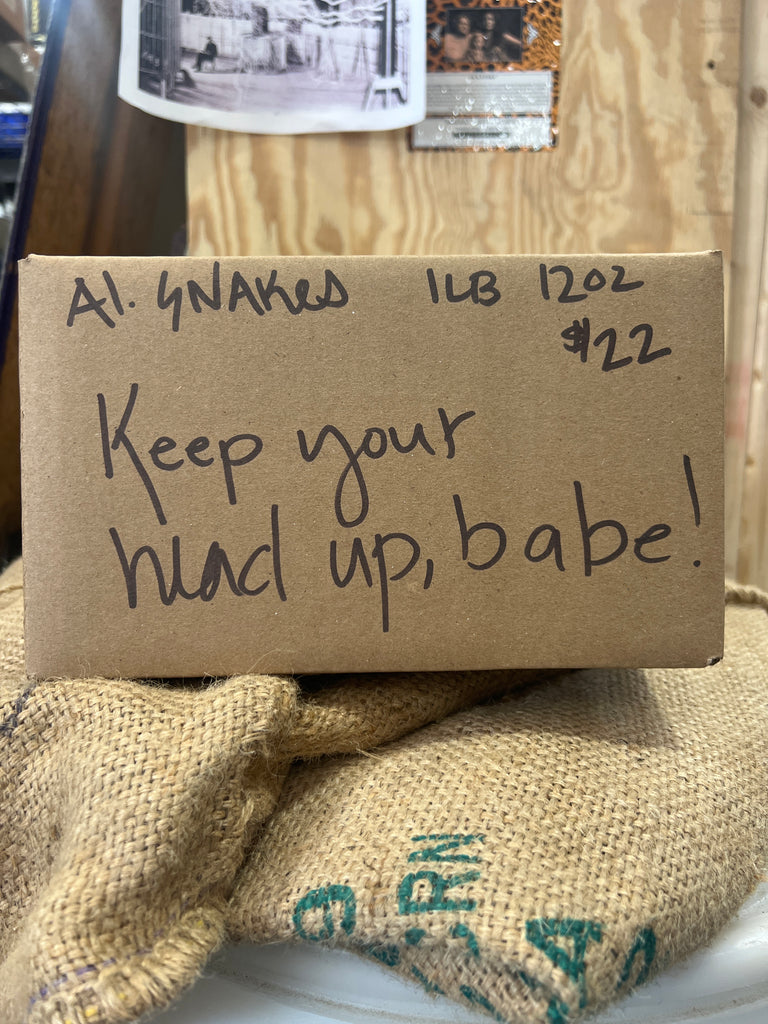 A1. SNAKES 1LB 12OZ
$22
Keep your
head up, babe!
9
CRN